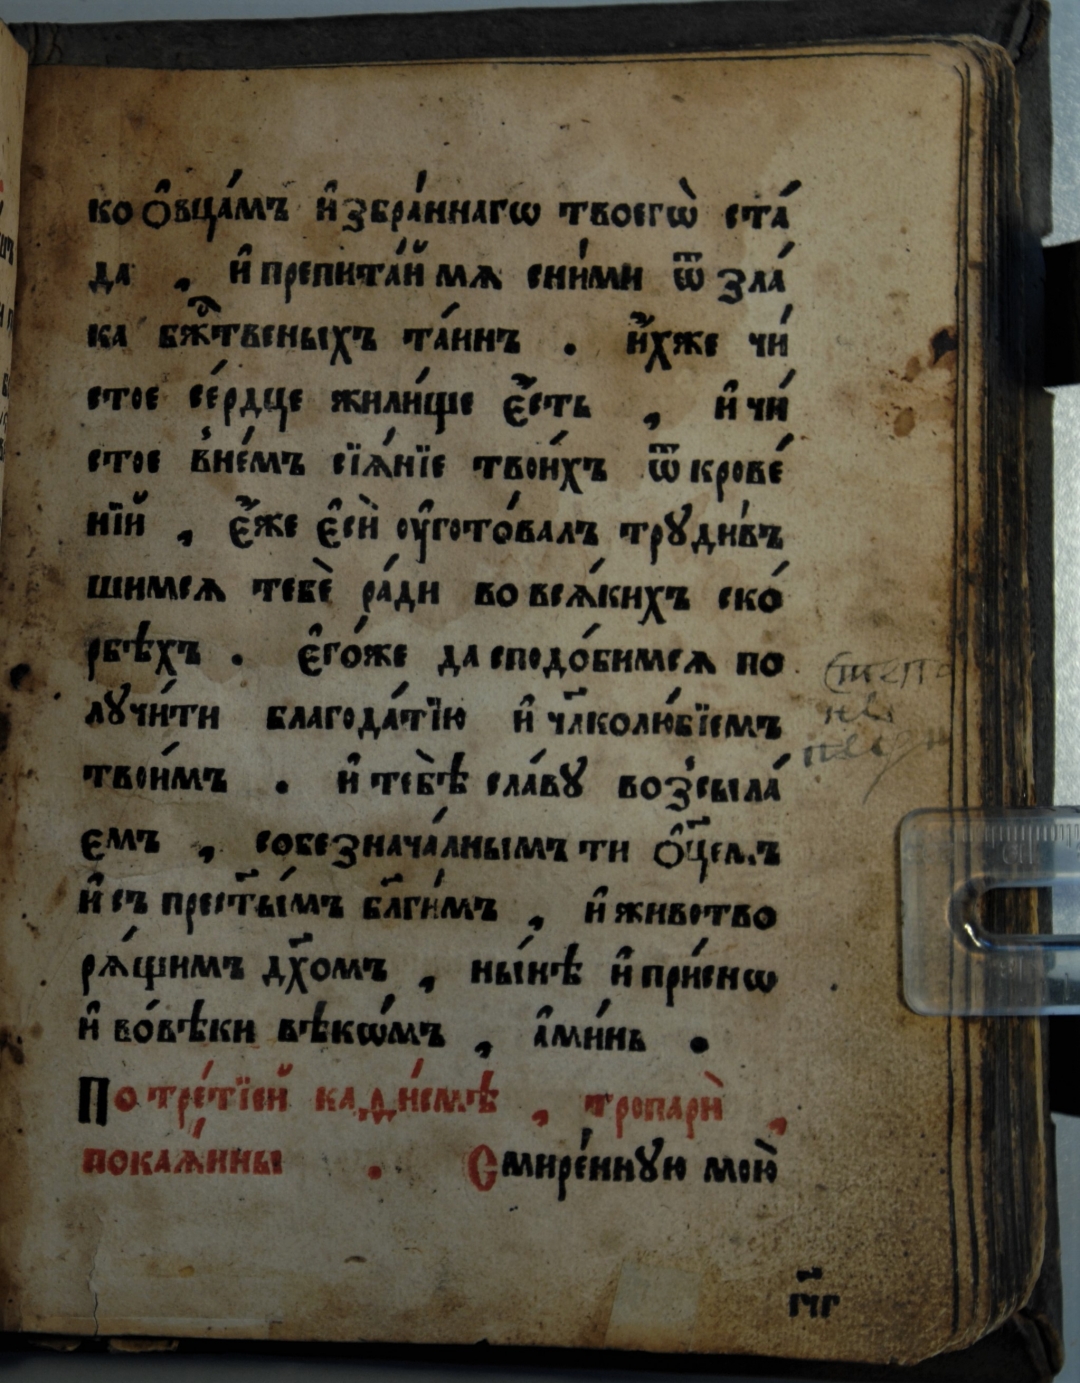 ко ѻ҆вца́мъ и҆збра́ннагѡ твоегѡ̀ ста́
да , и҆ препита́й мѧ сни́ми ѿ зла́
ка бж҃твеныхъ та́инъ . и҆́хже чи́
стое се́рдце жили́ще є҆́сть , и҆ чи́
стое вне́мъ сїѧ́нїе твои́хъ ѿкрове́
нїй , є҆́же є҆сѝ ᲂу҆гото́валъ трꙋди́в
шимсѧ тебѐ ра́ди во всѧ́кихъ ско́
рбѣхъ . є҆го́же да сподо́бимсѧ по
лꙋчи́ти благода́тїю и҆ чл҃колю́бїемъ
твои́мъ . и҆ тебѣ̀ сла́вꙋ возсыла́
ємъ , собезнача́лнымъ ти ѻ҆ц҃емъ
и҆ съ прест҃ы́мъ бл҃ги́мъ , и҆ животво
рѧ́щимъ дх҃омъ , ны́нѣ и҆ при́снѡ
и҆ во́вѣки вѣкѡ́мъ , а҆ми́нь .
По тре́тїей каѳи́смѣ , тропарѝ ,
покаѧ́нны . Смире́ннꙋю мою̀
рм҃г